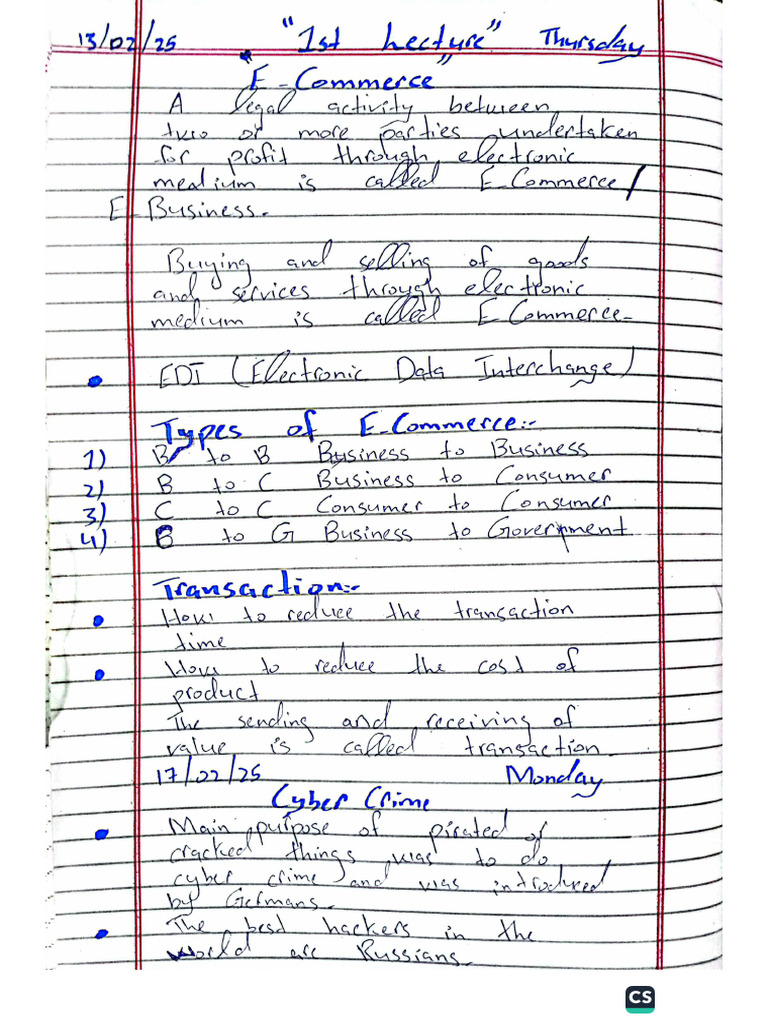 13/02/25 "1st Lecture" Thursday
"E-Commerce"
A legal activity between
two or more parties undertaken
for profit through electronic
medium is called E-Commerce/
E-Business.
Buying and selling of goods
and services through electronic
medium is called E Commerce-
• EDI (Electronic Data Interchange)
Types of E-Commerce:-
1) B to B Business to Business
2) B to C Business to Consumer
3) C to C Consumer to Consumer
4) B to G Business to Government
Transaction:-
• How to reduce the transaction
time
• How to reduce the cost of
product
The sending and receiving of
value is called transaction
17/02/25 Monday
Cyber Crime
• Main purpose of pirated or
cracked things was to do
cyber crime and was introduced
by Germans.
• The best hackers in the
world are Russians.
CS